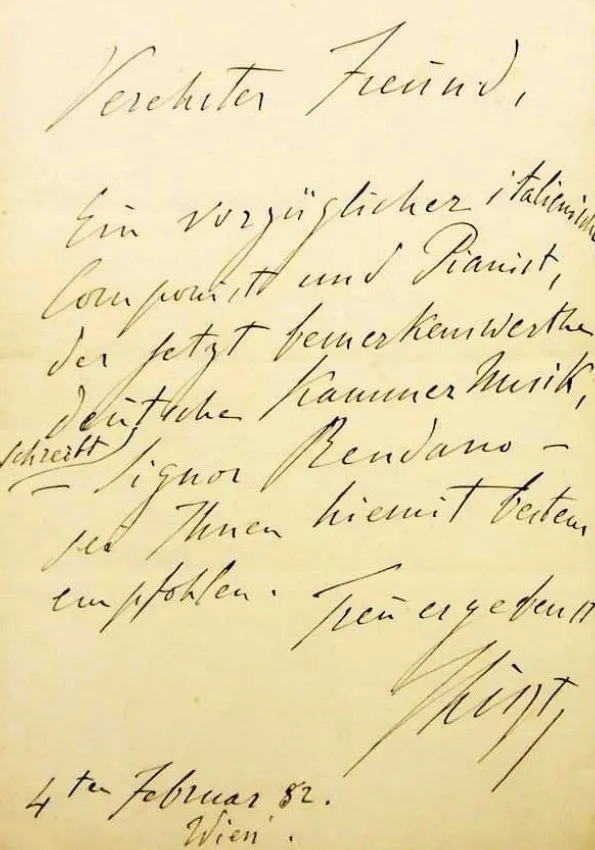 Verehrter Freund,
Ein vorzüglicher italienischer
Componist und Pianist,
der jetzt bemerkenswerthe
deutsche Kammer Musik,
schreibt
– Signor Rendano –
sei Ihnen hiemit bestens
empfohlen.
Treu ergebenst
FLiszt
4ten Februar 82.
Wien.